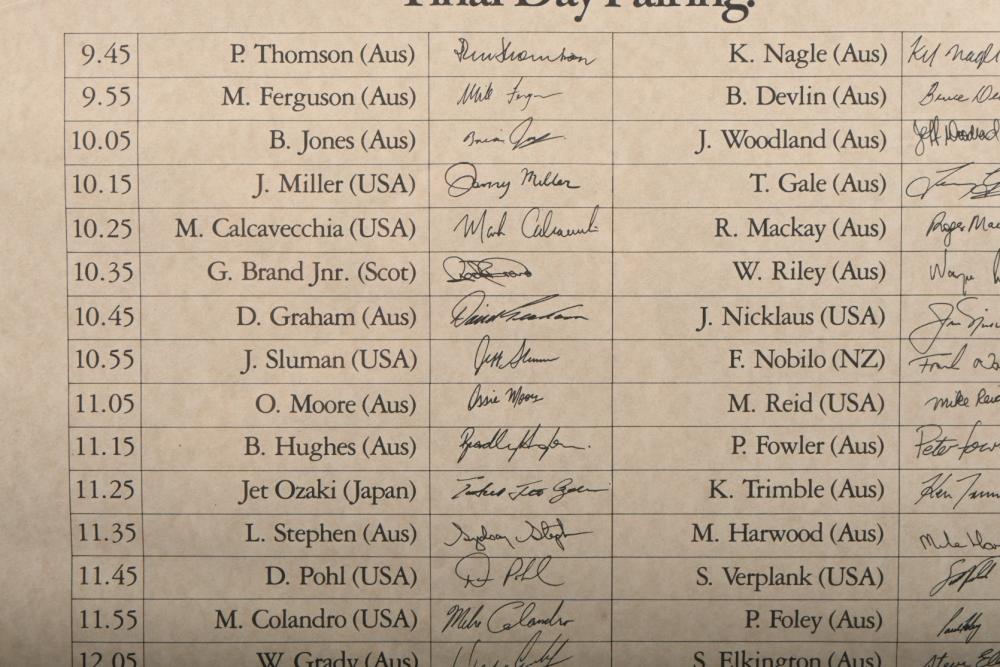 Final Day Pairing.
9.45 P. Thomson (Aus) K. Nagle (Aus)
9.55 M. Ferguson (Aus) B. Devlin (Aus) Bruce
10.05 B. Jones (Aus) Brian J. Woodland (Aus) Jeff Woodland
10.15 J. Miller (USA) Johnny Miller T. Gale (Aus)
10.25 M. Calcavecchia (USA) Mark R. Mackay (Aus) Roger Mac
10.35 G. Brand Jnr. (Scot) W. Riley (Aus) Wayne
10.45 D. Graham (Aus) David Graham J. Nicklaus (USA)
10.55 J. Sluman (USA) Jeff Sluman F. Nobilo (NZ) Frank
11.05 O. Moore (Aus) Ossie Moore M. Reid (USA) Mike Reid
11.15 B. Hughes (Aus) Bradley Hughes P. Fowler (Aus) Peter Fow
11.25 Jet Ozaki (Japan) K. Trimble (Aus) Ken
11.35 L. Stephen (Aus) M. Harwood (Aus) Mike Har
11.45 D. Pohl (USA) D Pohl S. Verplank (USA)
11.55 M. Colandro (USA) Mike Colandro P. Foley (Aus)
12.05 W. Grady (Aus) S. Elkington (Aus) Steve El